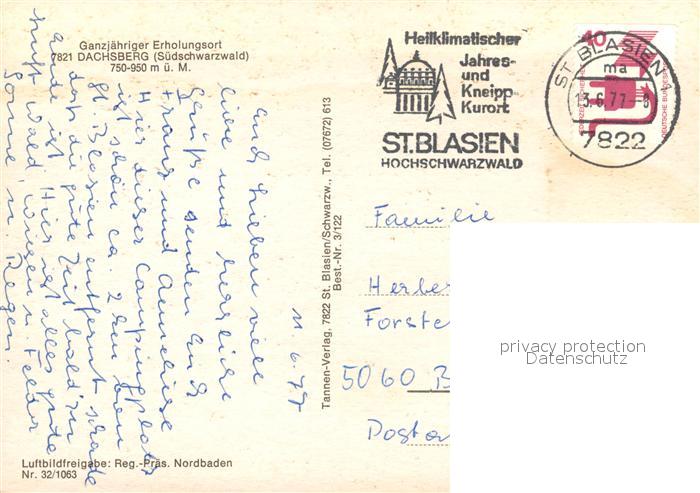 Ganzjähriger Erholungsort
7821 DACHSBERG (Südschwarzwald)
750-950 m ü. M.
11.6.77
Euch Lieben viele
liebe und herzliche
Grüße senden Euch
Franz und Anneliese
Hier dieser Campingplatz
ist schön ca. 2 km von
St. Blasien entfernt schade
daß die gute Zeit bald zu
ende ist. Hier ist alles gute
Luft Wald, Wiesen u Felder
Sonne u. Regen.
Luftbildfreigabe: Reg.-Präs. Nordbaden
Nr. 32/1063
Tannen-Verlag, 7822 St. Blasien/Schwarzw., Tel. (07672) 613
Best.-Nr. 3/122
Heilklimatischer
Jahres-
und
Kneipp
Kurort
ST.BLASIEN
HOCHSCHWARZWALD
ST BLASIEN 1
ma
13.6.77-8
7822
40
DEUTSCHE BUNDESPOST
Familie
Herber
Forste
5060 B
Posta
privacy protection
Datenschutz